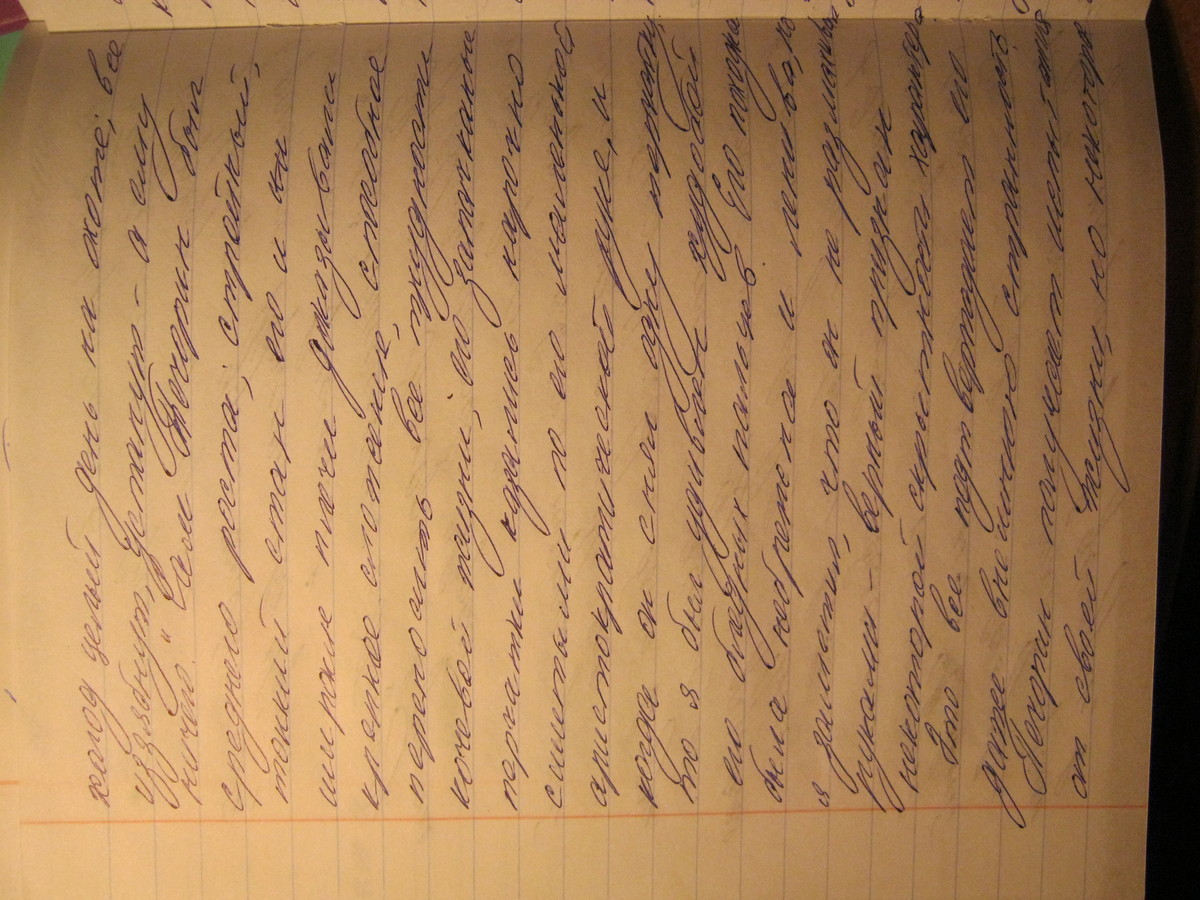 холод целый день на охоте; все
иззябнут, устанут - а ему
ничего". Сам Печорин был
среднего роста; стройный,
тонкий стан его и ши
широкие плечи доказывали
крепкое сложение, способное
переносить все трудности
кочевой жизни; его запачканные
перчатки казались нарочно
сшитыми по его маленькой
аристократической руке, и
когда он снял одну перчатку,
то я был удивлен худобой
его бледных пальцев. Его походка
была небрежна и ленива, но
я заметил, что он не размахивал
руками - верный признак
некоторой скрытности характера
Это все подтвердило его
даже внешнюю странность.
Печорин получает
от своей жизни, но